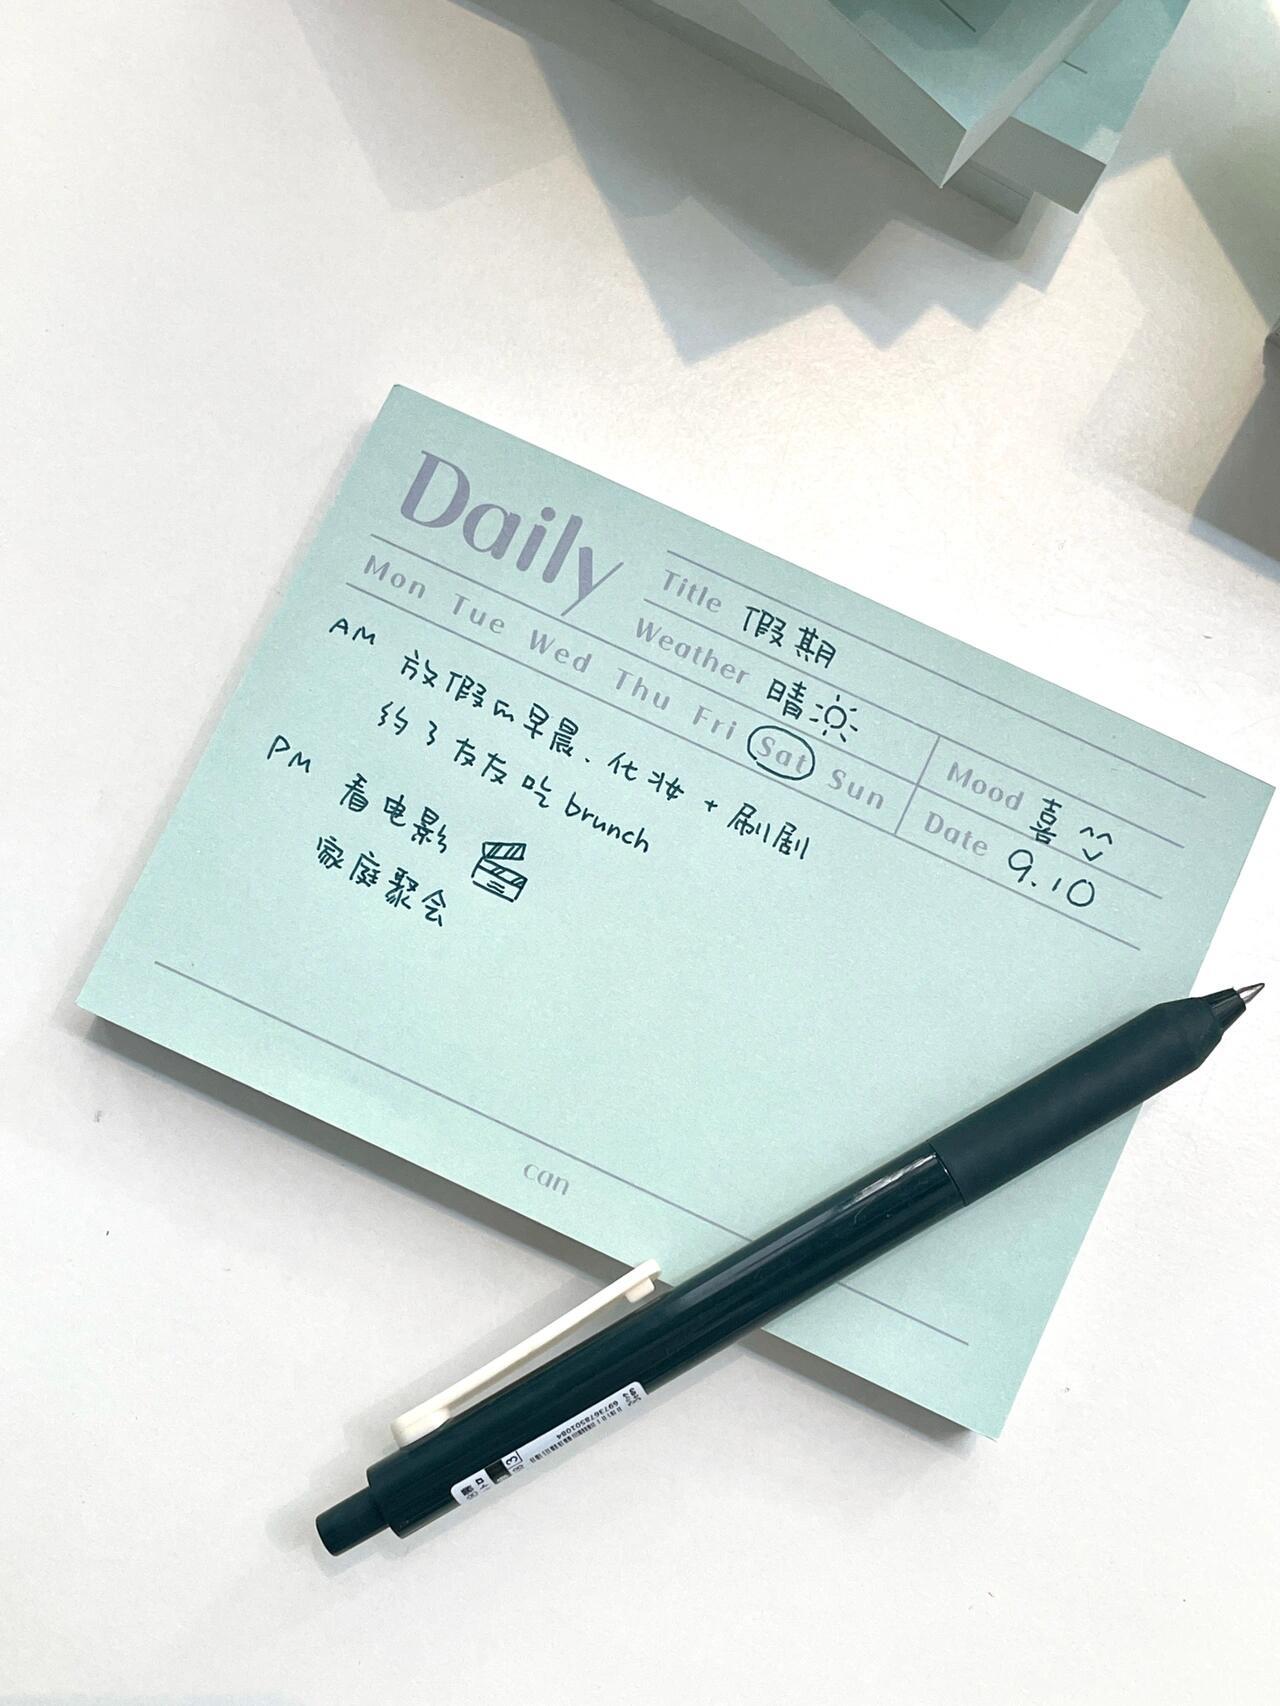 Daily
Title 假期
Weather 晴
Mood 喜
Mon Tue Wed Thu Fri Sat Sun
Date 9.10
AM 放假的早晨、化妆+刷剧
约了友友吃brunch
PM 看电影
家庭聚会
can
6973678501084